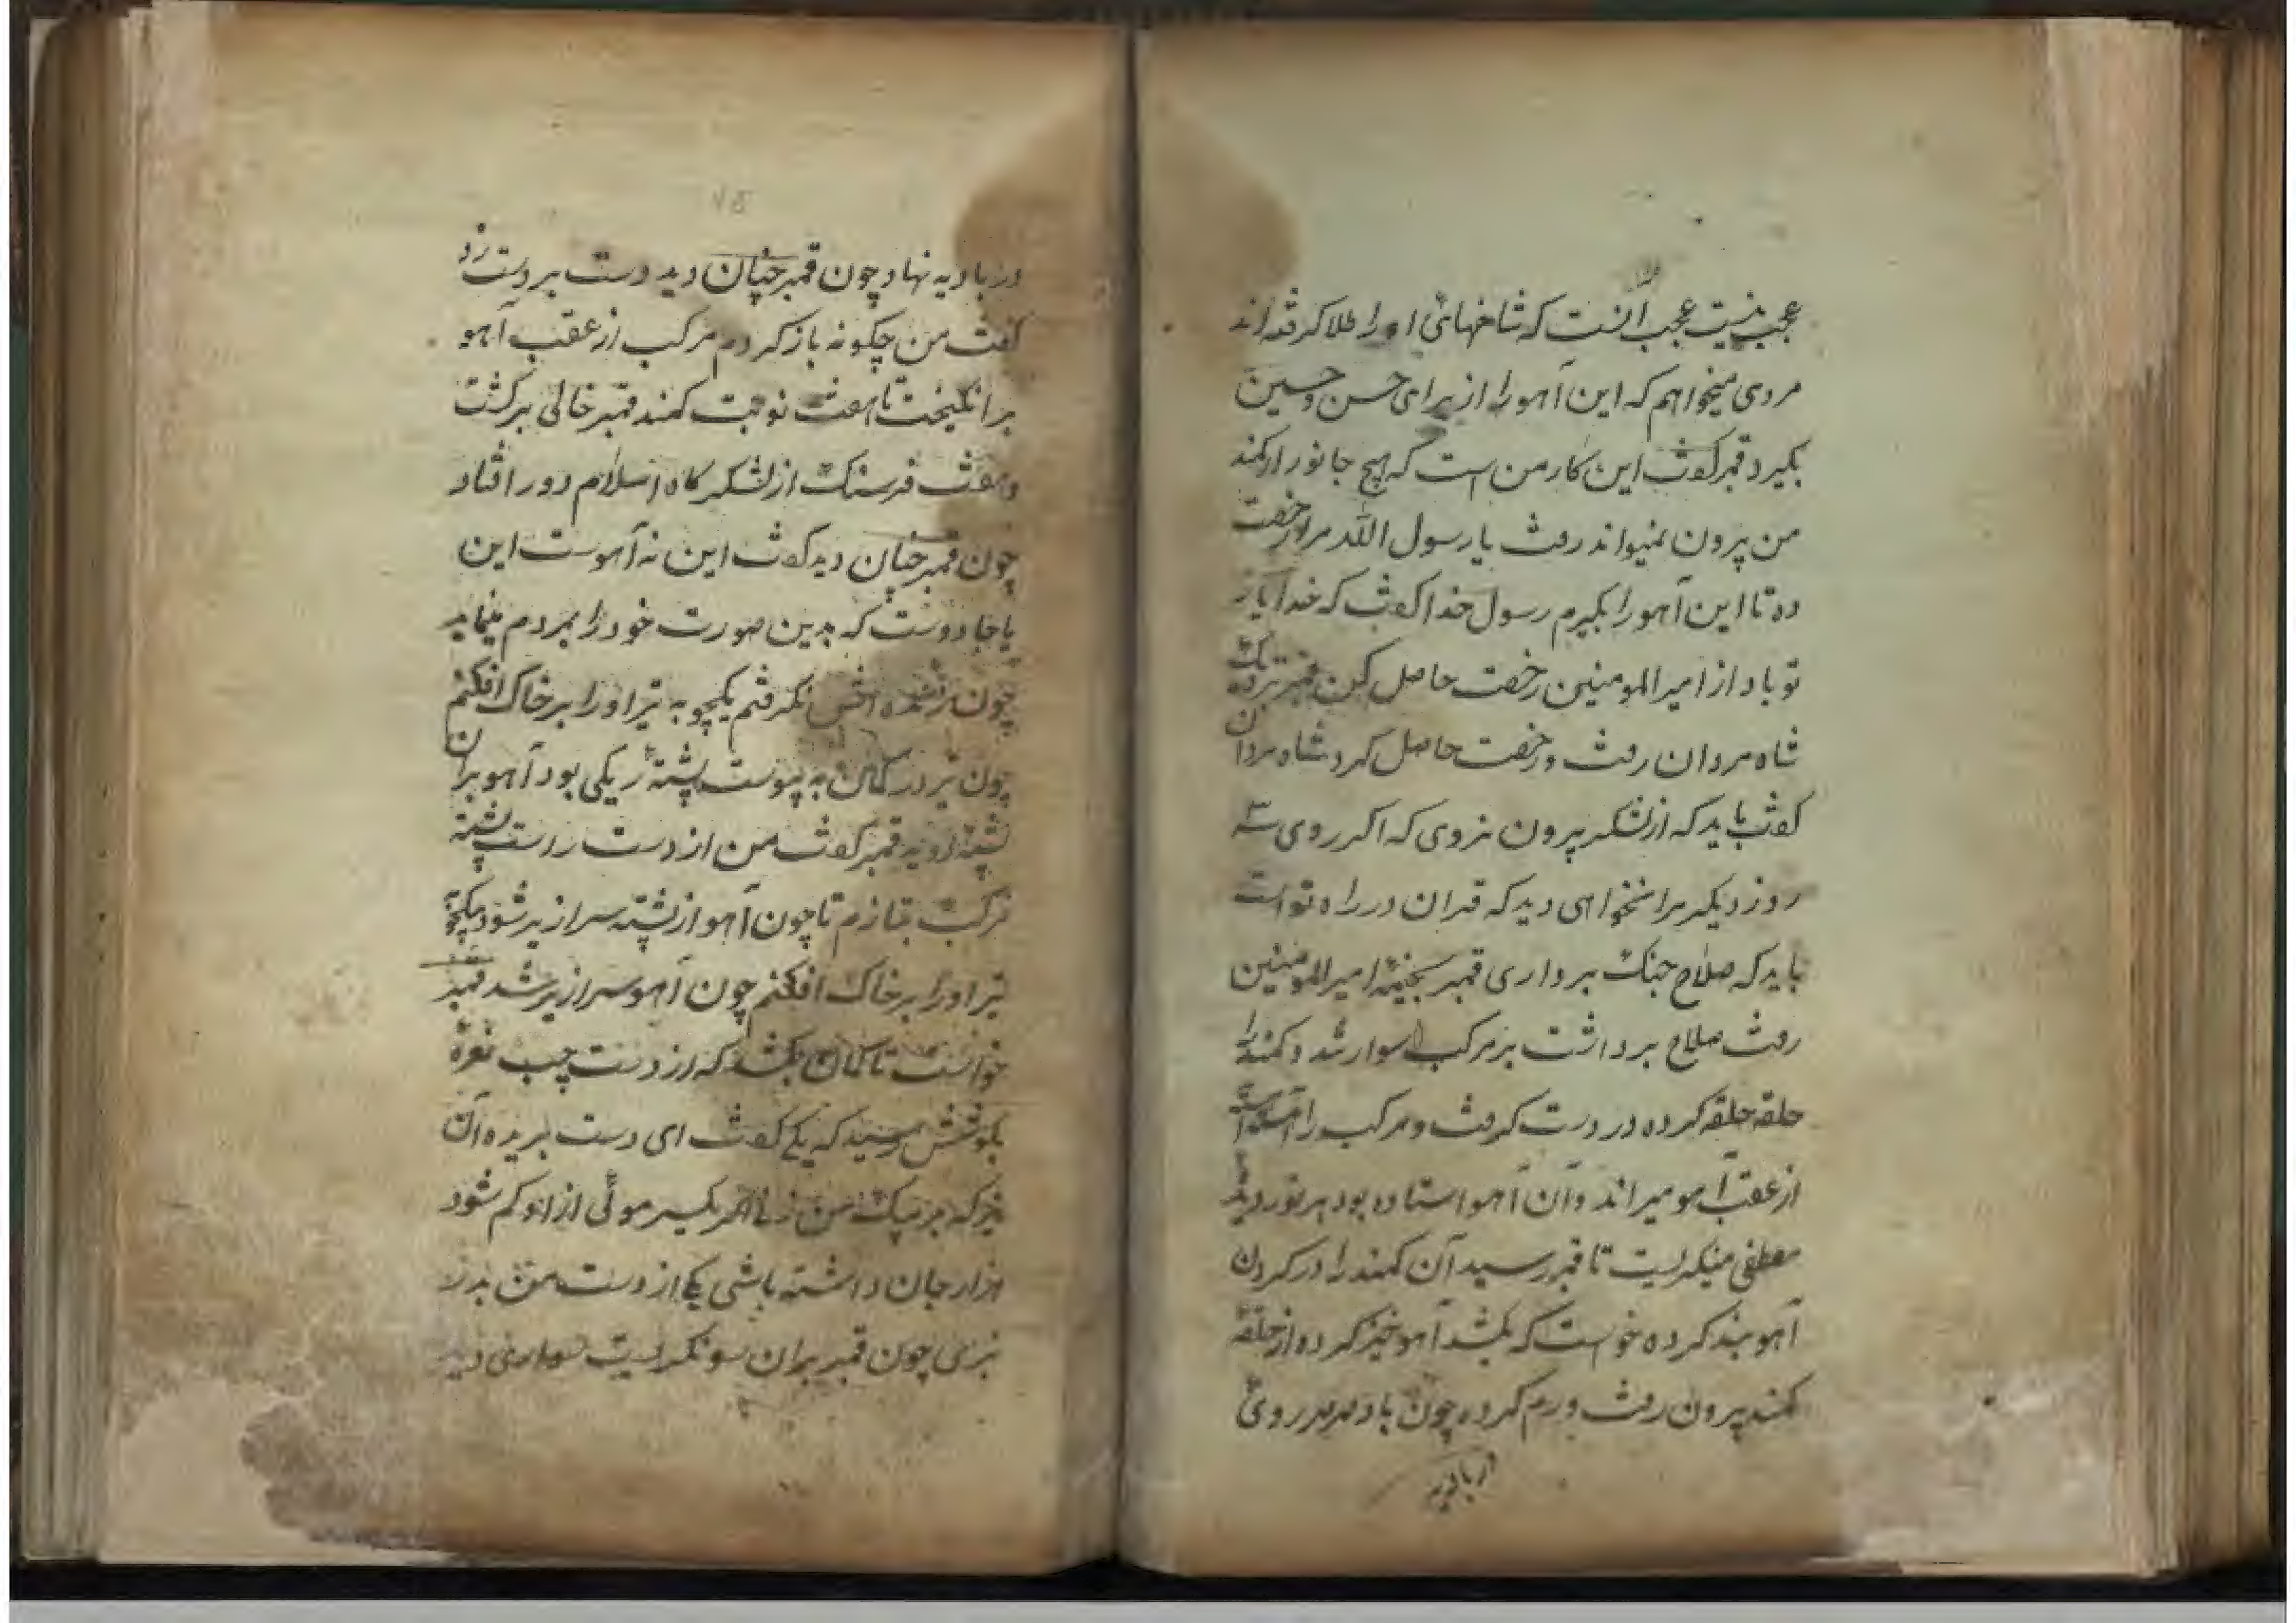 عجب نیست عجب آنست که شاخهای او را طلا گرفته‌اند
مردی میخواهم که این آهو را از برای حسن و حسین
بگیرد قمبر گفت این کار من است که هیچ جانور از کمند
من بیرون نمیتواند رفت یا رسول الله مرا رخصت
ده تا این آهو را بگیرم رسول خدا گفت که خدا یار
تو باد از امیرالمومنین رخصت حاصل کن قمبر نزدیک
شاه مردان رفت و رخصت حاصل کرد شاه مردان
گفت باید که از لشکر بیرون نروی که اگر روی سه
روز دیگر مرا نخواهی دید که قران در راه تو است
باید که صلاح جنک برداری قمبر بخیمه امیرالمومنین
رفت صلاح برداشت بر مرکب سوار شد و کمند را
حلقه حلقه کرده در دست گرفت و مرکب را آهسته
از عقب آهو میراند و آن آهو استاده بود بر نور دیده
مصطفی مینگریست تا قمبر رسید آن کمند را در گردن
آهو بند کرده خواست که بکشد آهو خیز کرده از حلقه
کمند بیرون رفت و رم کرده چون باد صرصر روی
در بادیه
۱۵
در بادیه نهاد چون قمبر چنان دید دست بر دست زد
گفت من چگونه باز گردم مرکب از عقب آهو
برانگیخت تا هفت نوبت کمند قمبر خالی برگشت
و هفت فرسنک از لشکرگاه اسلام دور افتاد
چون قمبر چنان دید گفت این نه آهوست این
یا جادوست که بدین صورت خود را بمردم مینماید
چون زنده اش نگرفتم بیکچوبه تیر او را بر خاک افکنم
چون تیر در کمان به پیوست پشته ریکی بود آهو بران
پشته دوید قمبر گفت من از دست راست پشته
مرکب بتازم تا چون آهو از پشته سرازیر شود بیکچوبه
تیر او را بر خاک افکنم چون آهو سرازیر شد قمبر
خواست تا کمان بکشد که از دست چپ نعره
بگوشش رسید که یکی گفت ای دست بریده آن
تیر که بر من زنی اگر یکسر موئی از او کم شود
هزار جان داشته باشی یکی از دست من بدر
نبری چون قمبر بران سو نگریست سواری دید